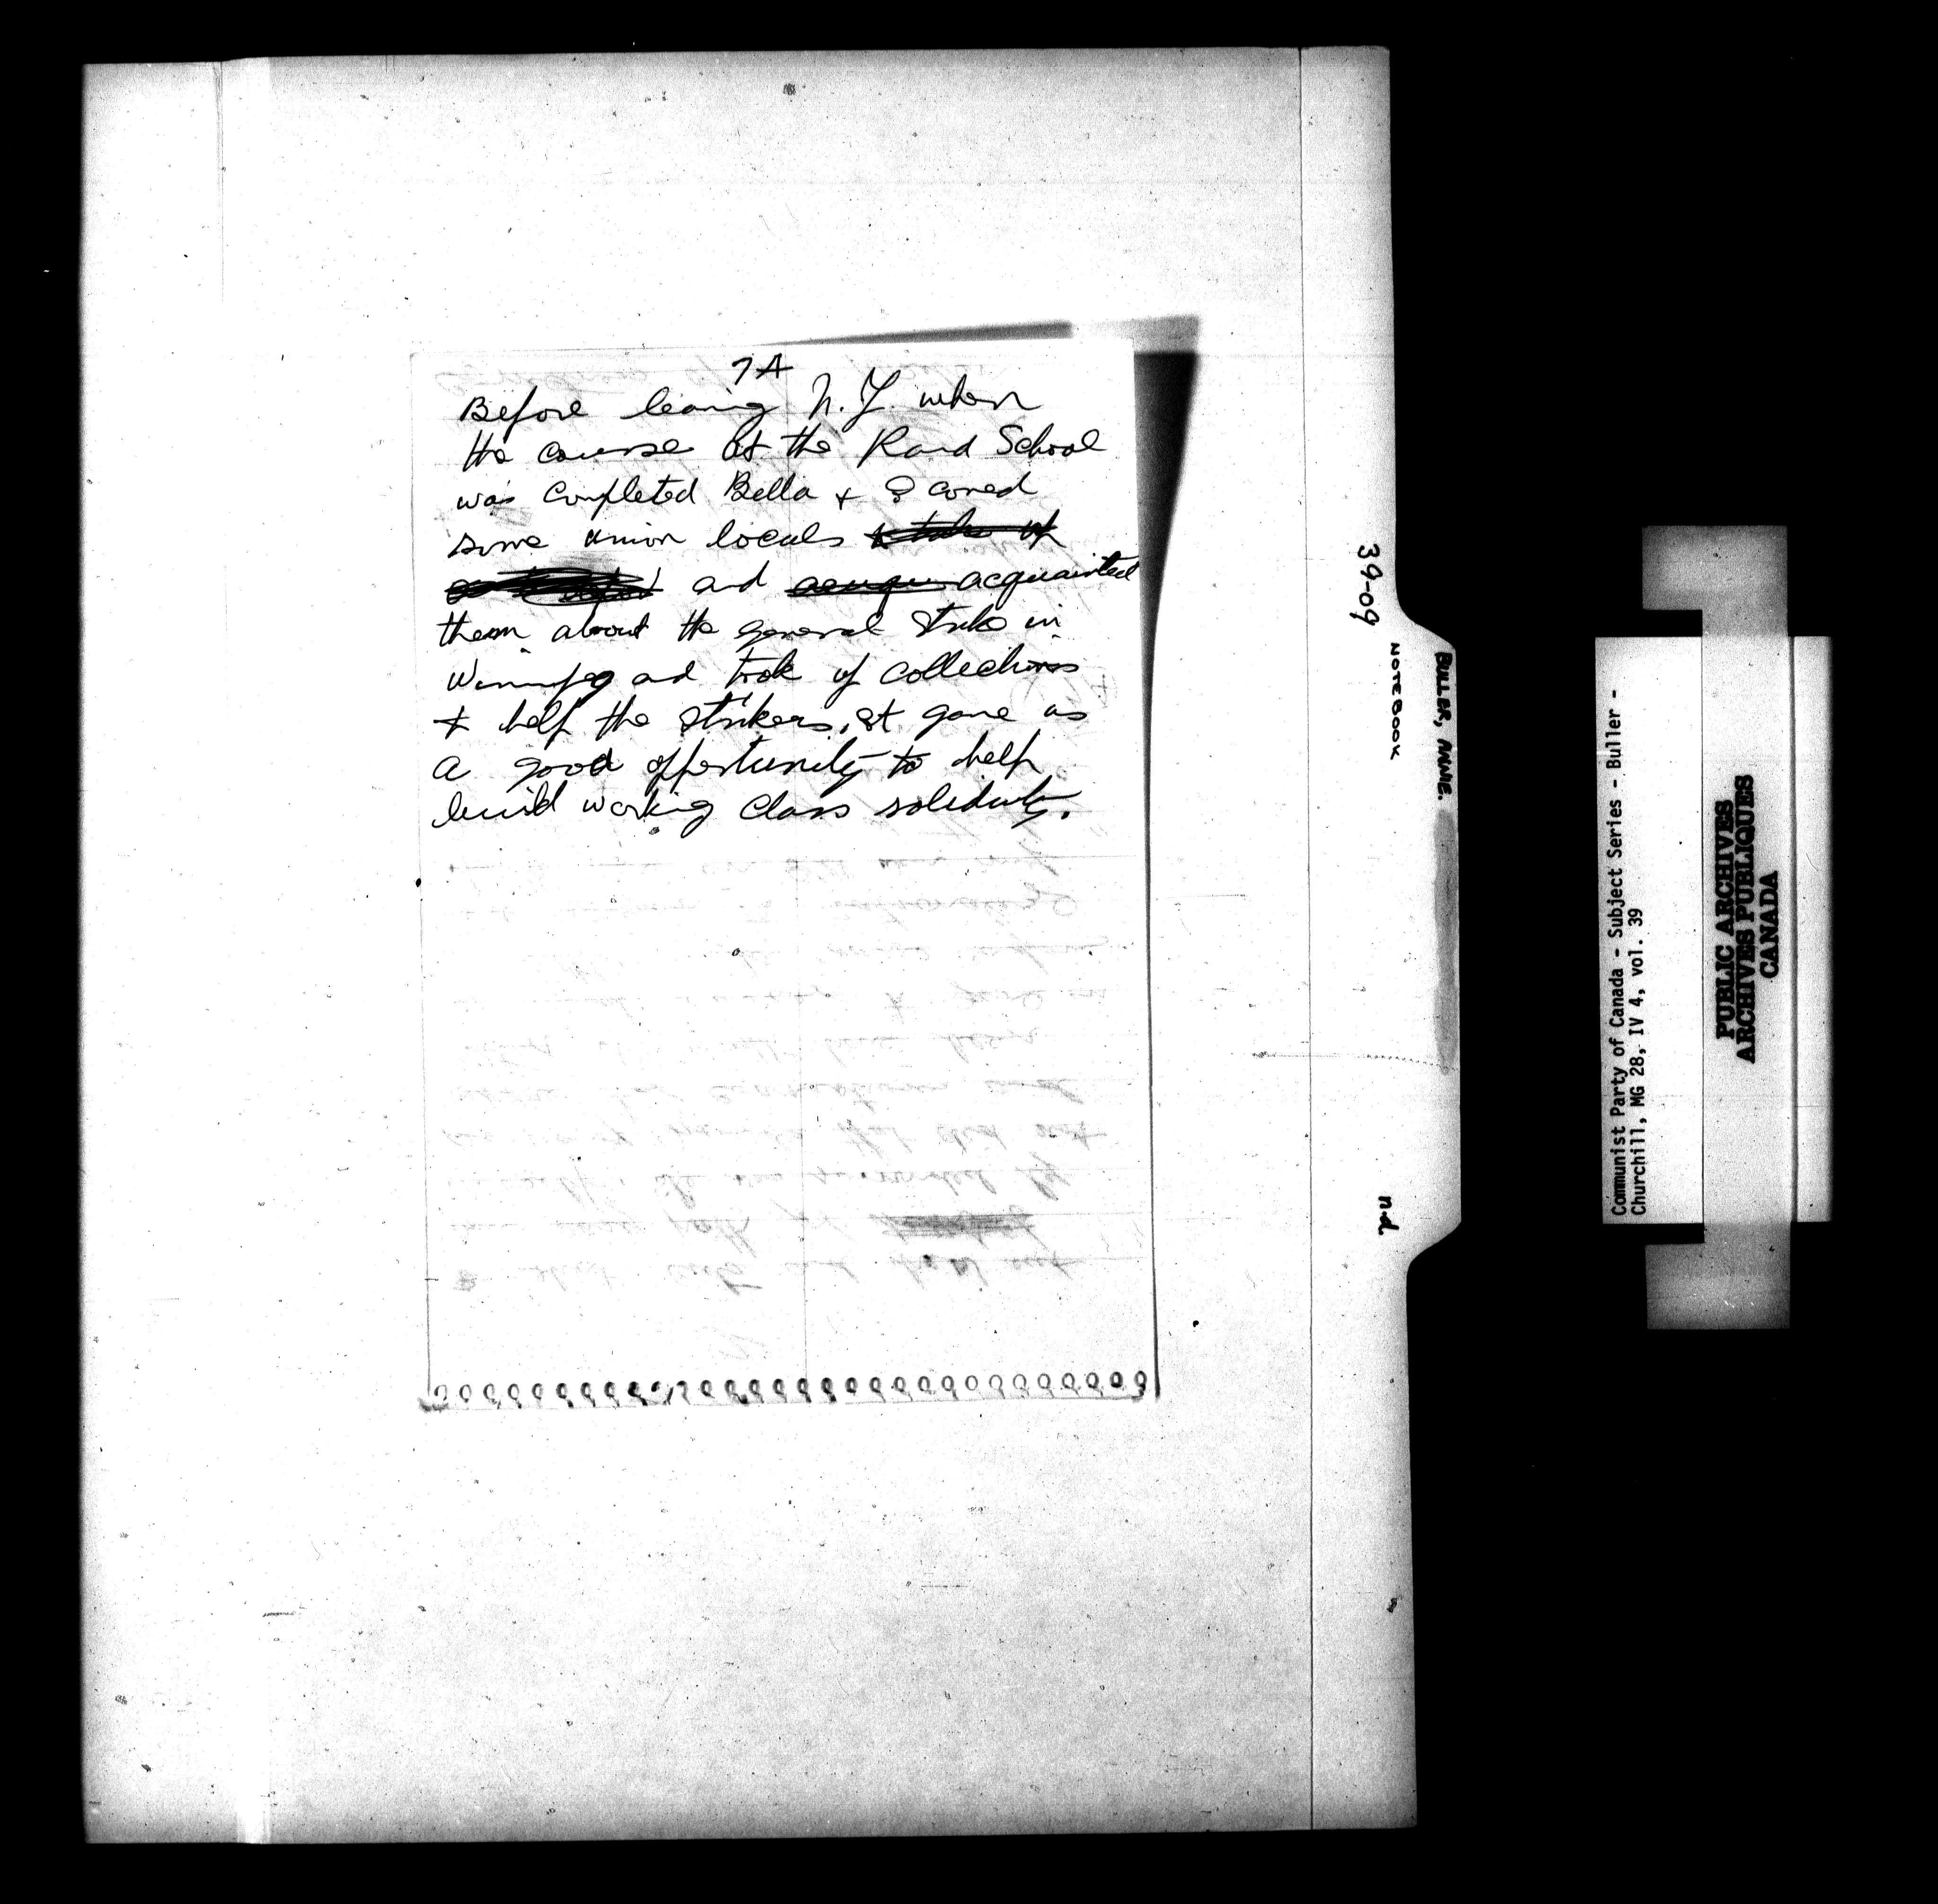 7A
Before leaving N.Y. when
the course at the Rand School
was completed Bella + I coved
some union locals
and acquainted
them about the general strike in
Winnipeg and took up collections
to help the strikers, it gave us
a good opportunity to help
build working class solidarity.
39-09
NOTEBOOK
BULLER, ANNIE.
n.d.
Communist Party of Canada - Subject Series - Buller -
Churchill, MG 28, IV 4, vol. 39
PUBLIC ARCHIVES
ARCHIVES PUBLIQUES
CANADA